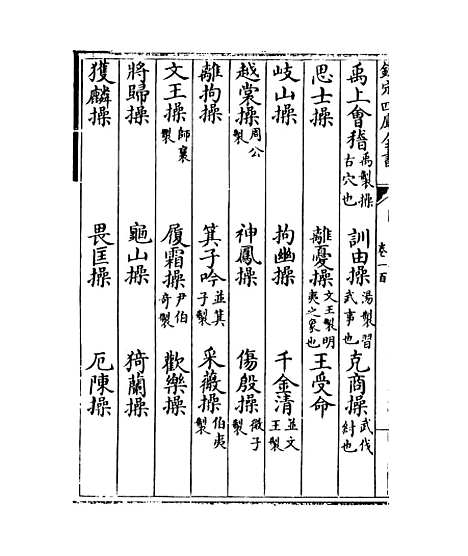 欽定四庫全書
卷一百
禹上會稽禹製操古穴也 訓由操湯製習武事也 克商操武伐紂也
思士操 離憂操文王製明夷之象也 王受命
岐山操 拘幽操 千金清並文王製
越裳操周公製 神鳳操 傷殷操微子製
離拘操 箕子吟並箕子製 采薇操伯夷製
文王操師襄製 履霜操尹伯奇製 歡樂操
將歸操 龜山操 猗蘭操
獲麟操 畏匡操 厄陳操